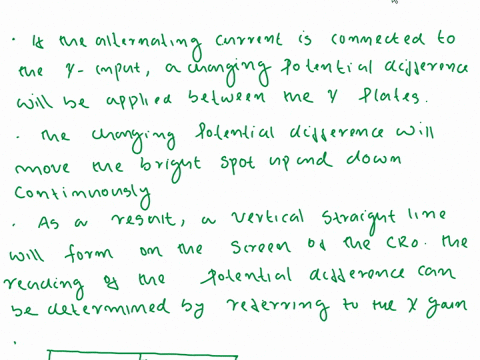 . If the alternating current is connected to
the Y-input, a changing potential difference
will be applied between the Y plates.
. The changing potential difference will
move the bright spot up and down
continuously
. As a result, a vertical straight line
will form on the screen of the CRO. The
reading of the potential difference can
be determined by referring to the Y gain
.